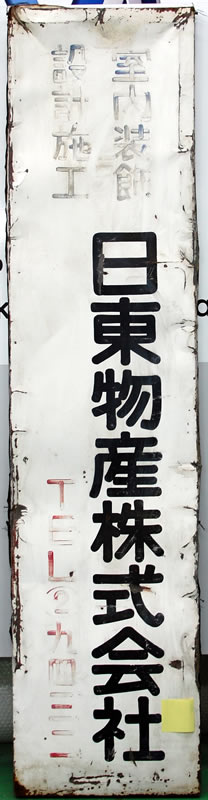 室内装飾
設計施工
日東物産株式会社
TEL②九四三二